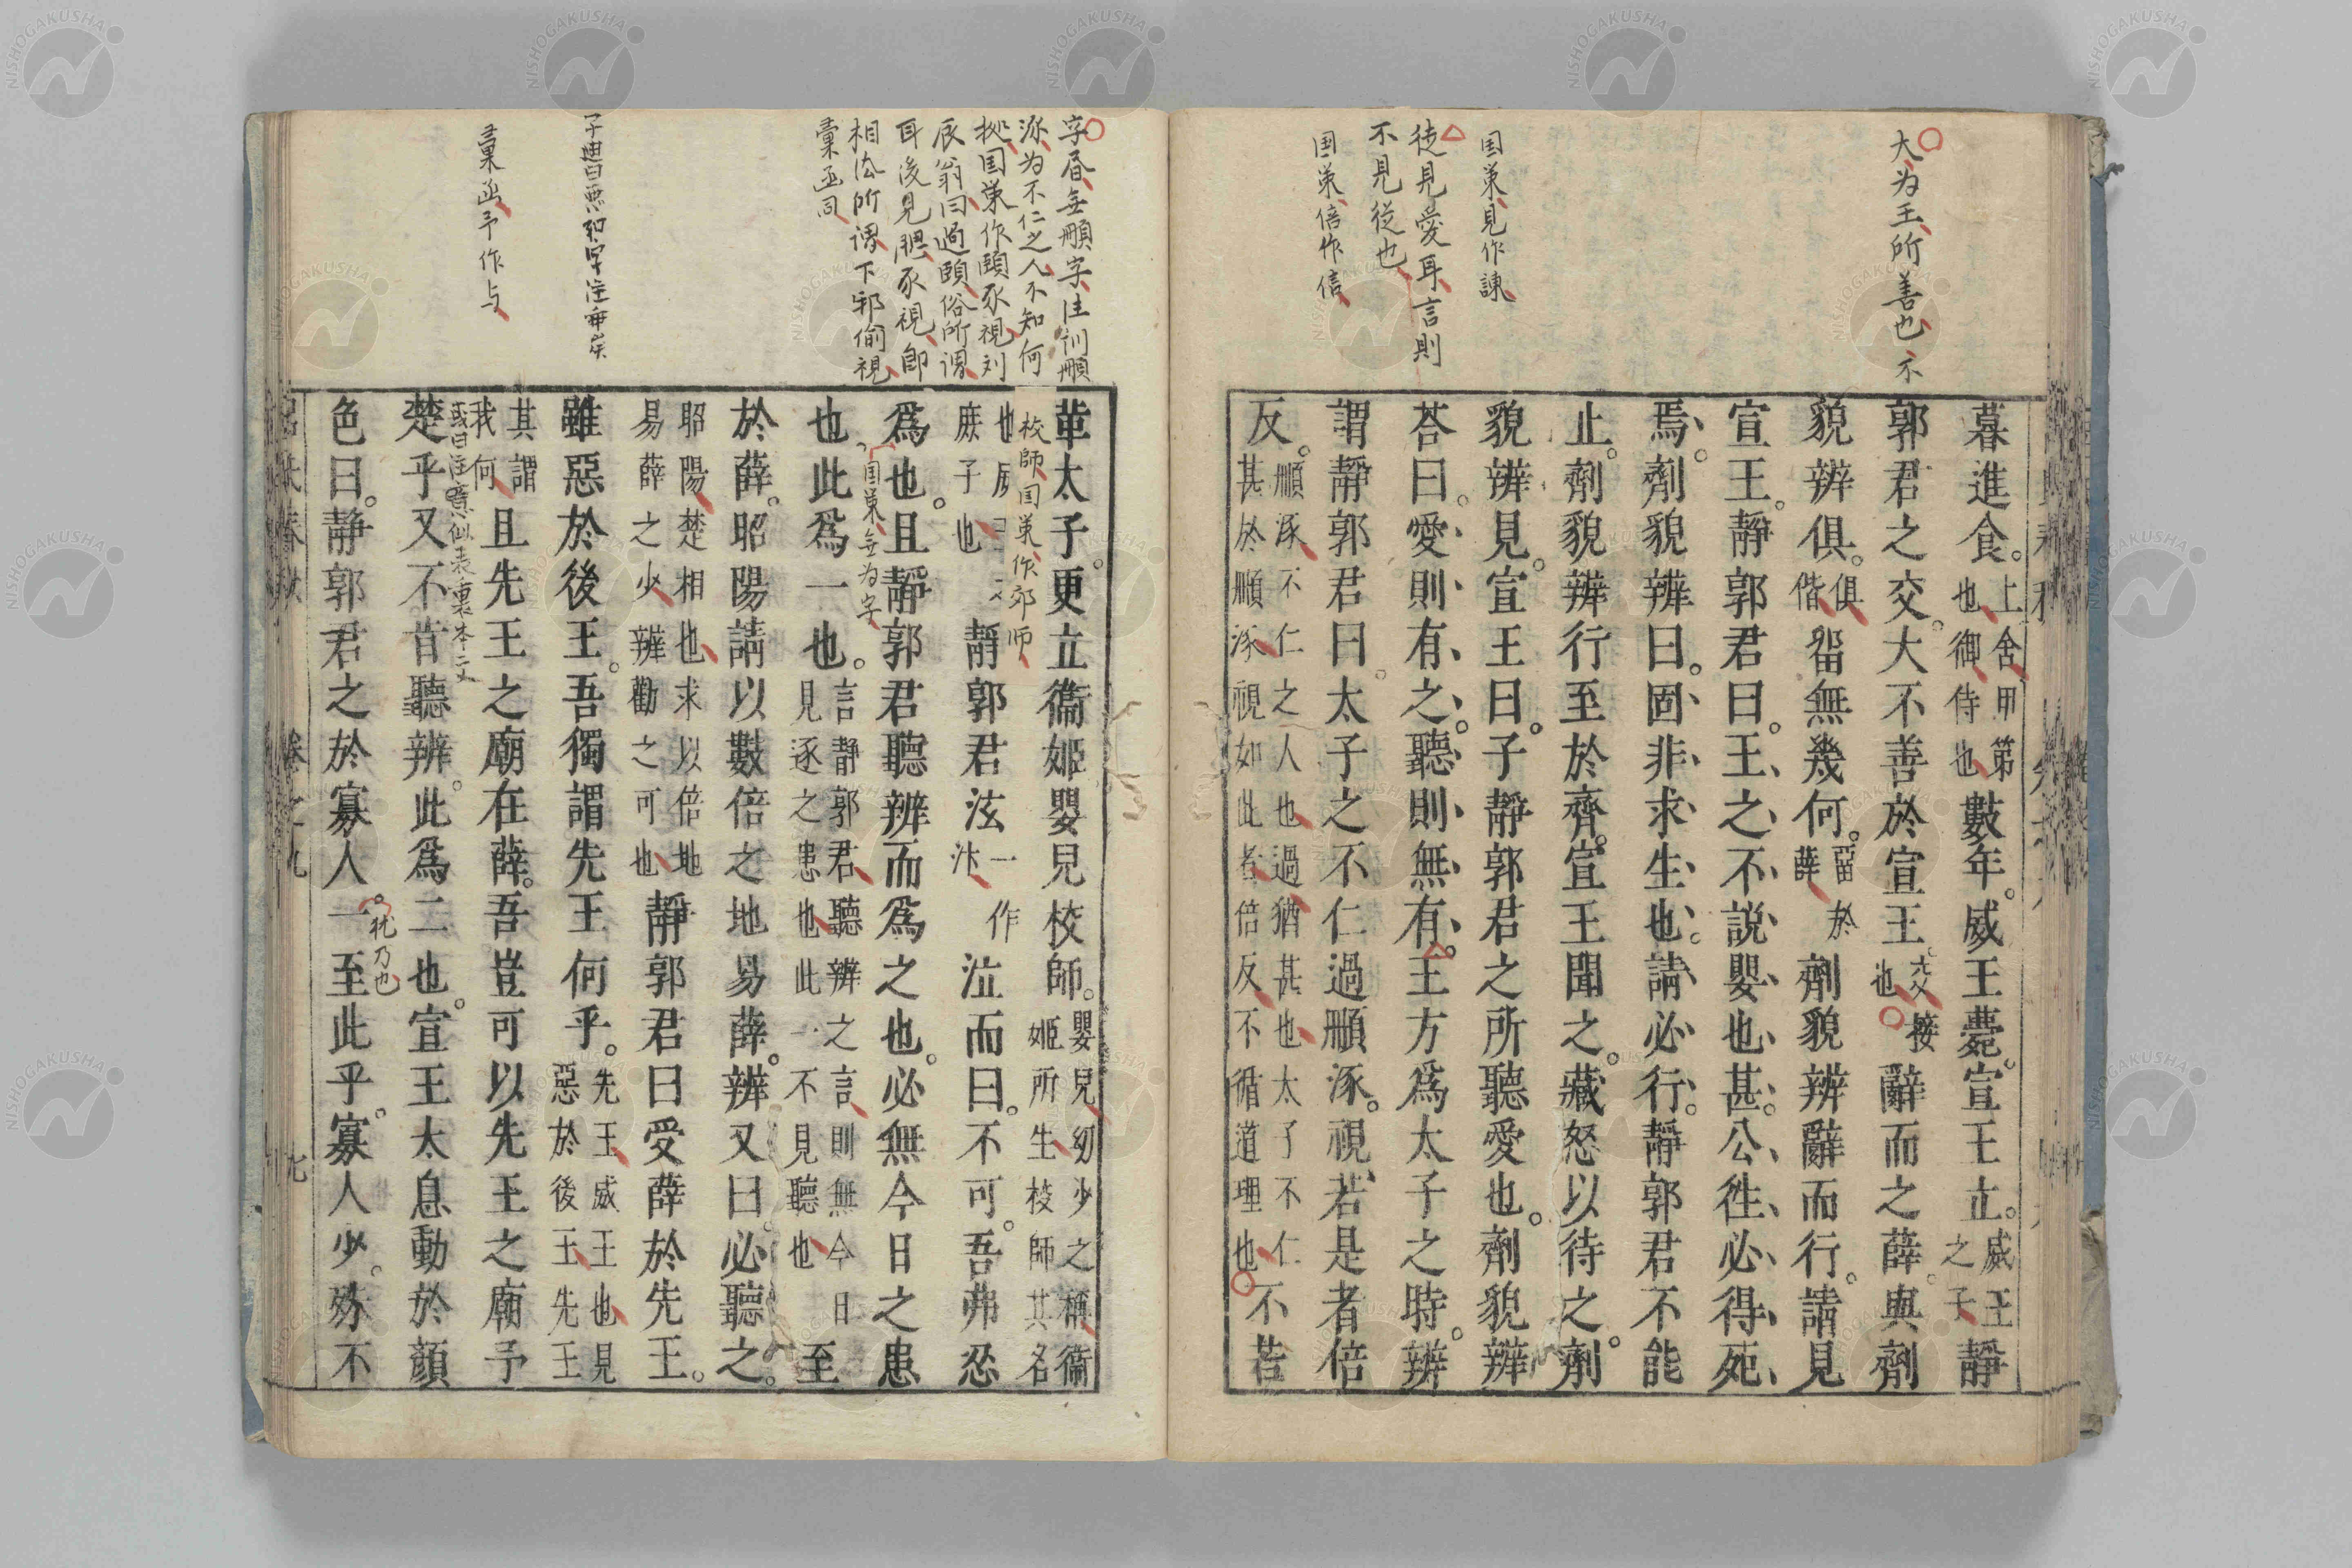 大为王所善也不
国䇿見作諫
徒見愛耳言則
不見從也
国䇿倍作信
暮進食。上舍甲第也御侍也數年。威王薨。宣王立。威王之子靜
郭君之交。大不善於宣王。交接也辭而之薛。與劑
貌辨俱。俱偕留無幾何。留於薛劑貌辨辭而行。請見
宣王。靜郭君曰。王之不說嬰也甚。公徃必得死
焉。劑貌辨曰。固非求生也。請必行。靜郭君不能
止。劑貌辨行至於齊。宣王聞之。藏怒以待之。劑
貌辨見。宣王曰。子靜郭君之所聽愛也。劑貌辨
荅曰。愛則有之。聽則無有。王方爲太子之時。辨
謂靜郭君曰。太子之不仁過䫇涿。視若是者倍
反。䫇涿不仁之人也過猶甚也太了不仁甚於䫇涿視如此者倍反不循道理也不若
字昏無䫇字注訓䫇
涿为不仁之人不知何
㨿国䇿作頤豕視刘
辰翁曰過頤俗所謂
耳後見腮豕視即
相法所謂下邪偷視
彙函同
彙函予作与
革太子。更立衞姬嬰兒校師。嬰兒幼少之稱衞姬所生校師其名
校師国䇿作郊师
也庶子也靜郭君泫一作汴泣而曰。不可。吾弗忍
爲也。且靜郭君聽辨而爲之也。必無今日之患
国䇿無为字
也此爲一也。言靜郭君聽辨之言則無今日見逐之患也此一不見聽也至
於薛。昭陽請以數倍之地易薛。辨又曰必聽之。
昭陽楚相也求以倍地易薛之少辨勸之可也靜郭君曰受薛於先王。
雖惡於後王。吾獨謂先王何乎。先王威王也見惡於後王先王
其謂我何且先王之廟在薛。吾豈可以先王之廟予
楚乎又不肯聽辨。此爲二也。宣王太息動於顏
色曰。靜郭君之於寡人。一至此乎。寡人少。殊不
卷之九
九